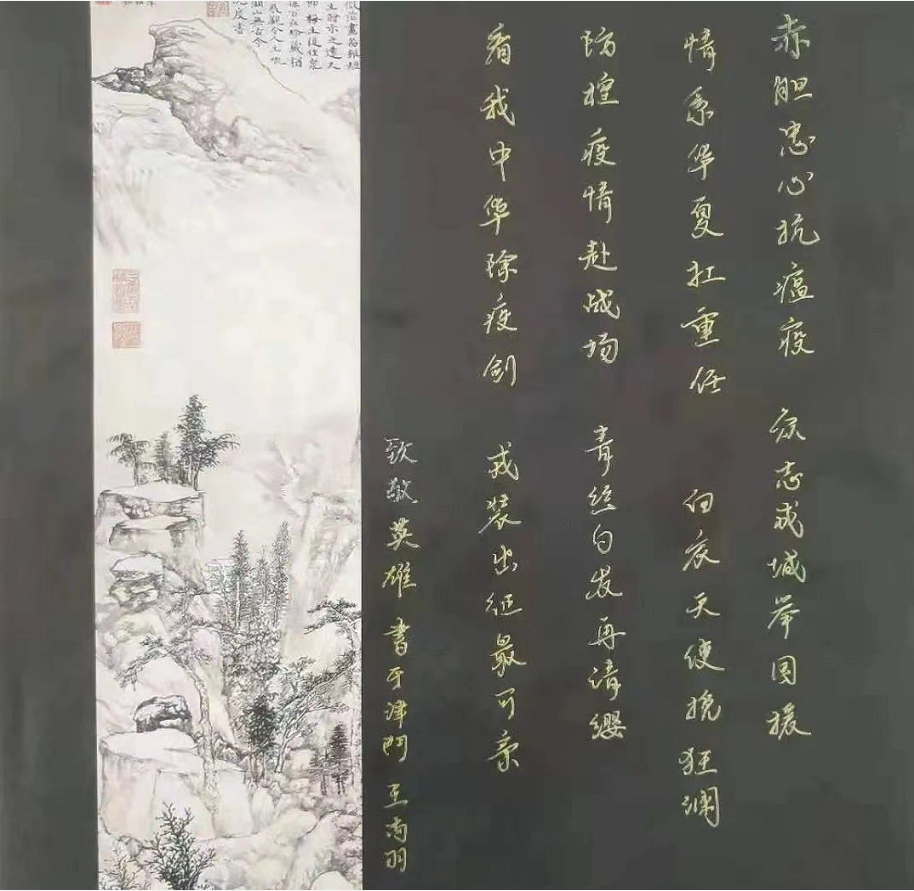 赤胆忠心抗瘟疫 众志成城举国援
情系华夏扛重任 白衣天使挽狂澜
防控疫情赴战场 青丝白发再请缨
看我中华除疫剑 戎装出征最可亲
致敬英雄 书于津门 王尚羽
湖山無古今